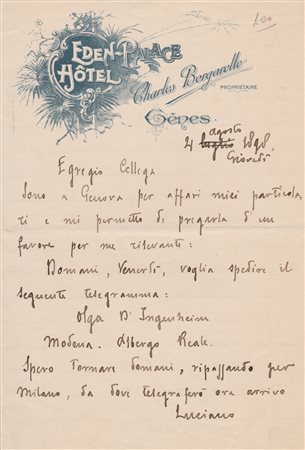 EDEN-PALACE
HÔTEL
Charles Borgarello
PROPRIÉTAIRE
Gênes
agosto
4 luglio 1898
Giovedì
Egregio Collega
Sono a Genova per affari miei particola,
ri e mi permetto di pregarla d'un
favore per me rilevante:
Domani, Venerdì, voglia spedire il
seguente telegramma:
Olga D' Ingenheim
Modena. Albergo Reale.
Spero tornare domani, ripassando per
Milano, da dove telegraferò ora arrivo
Luciano